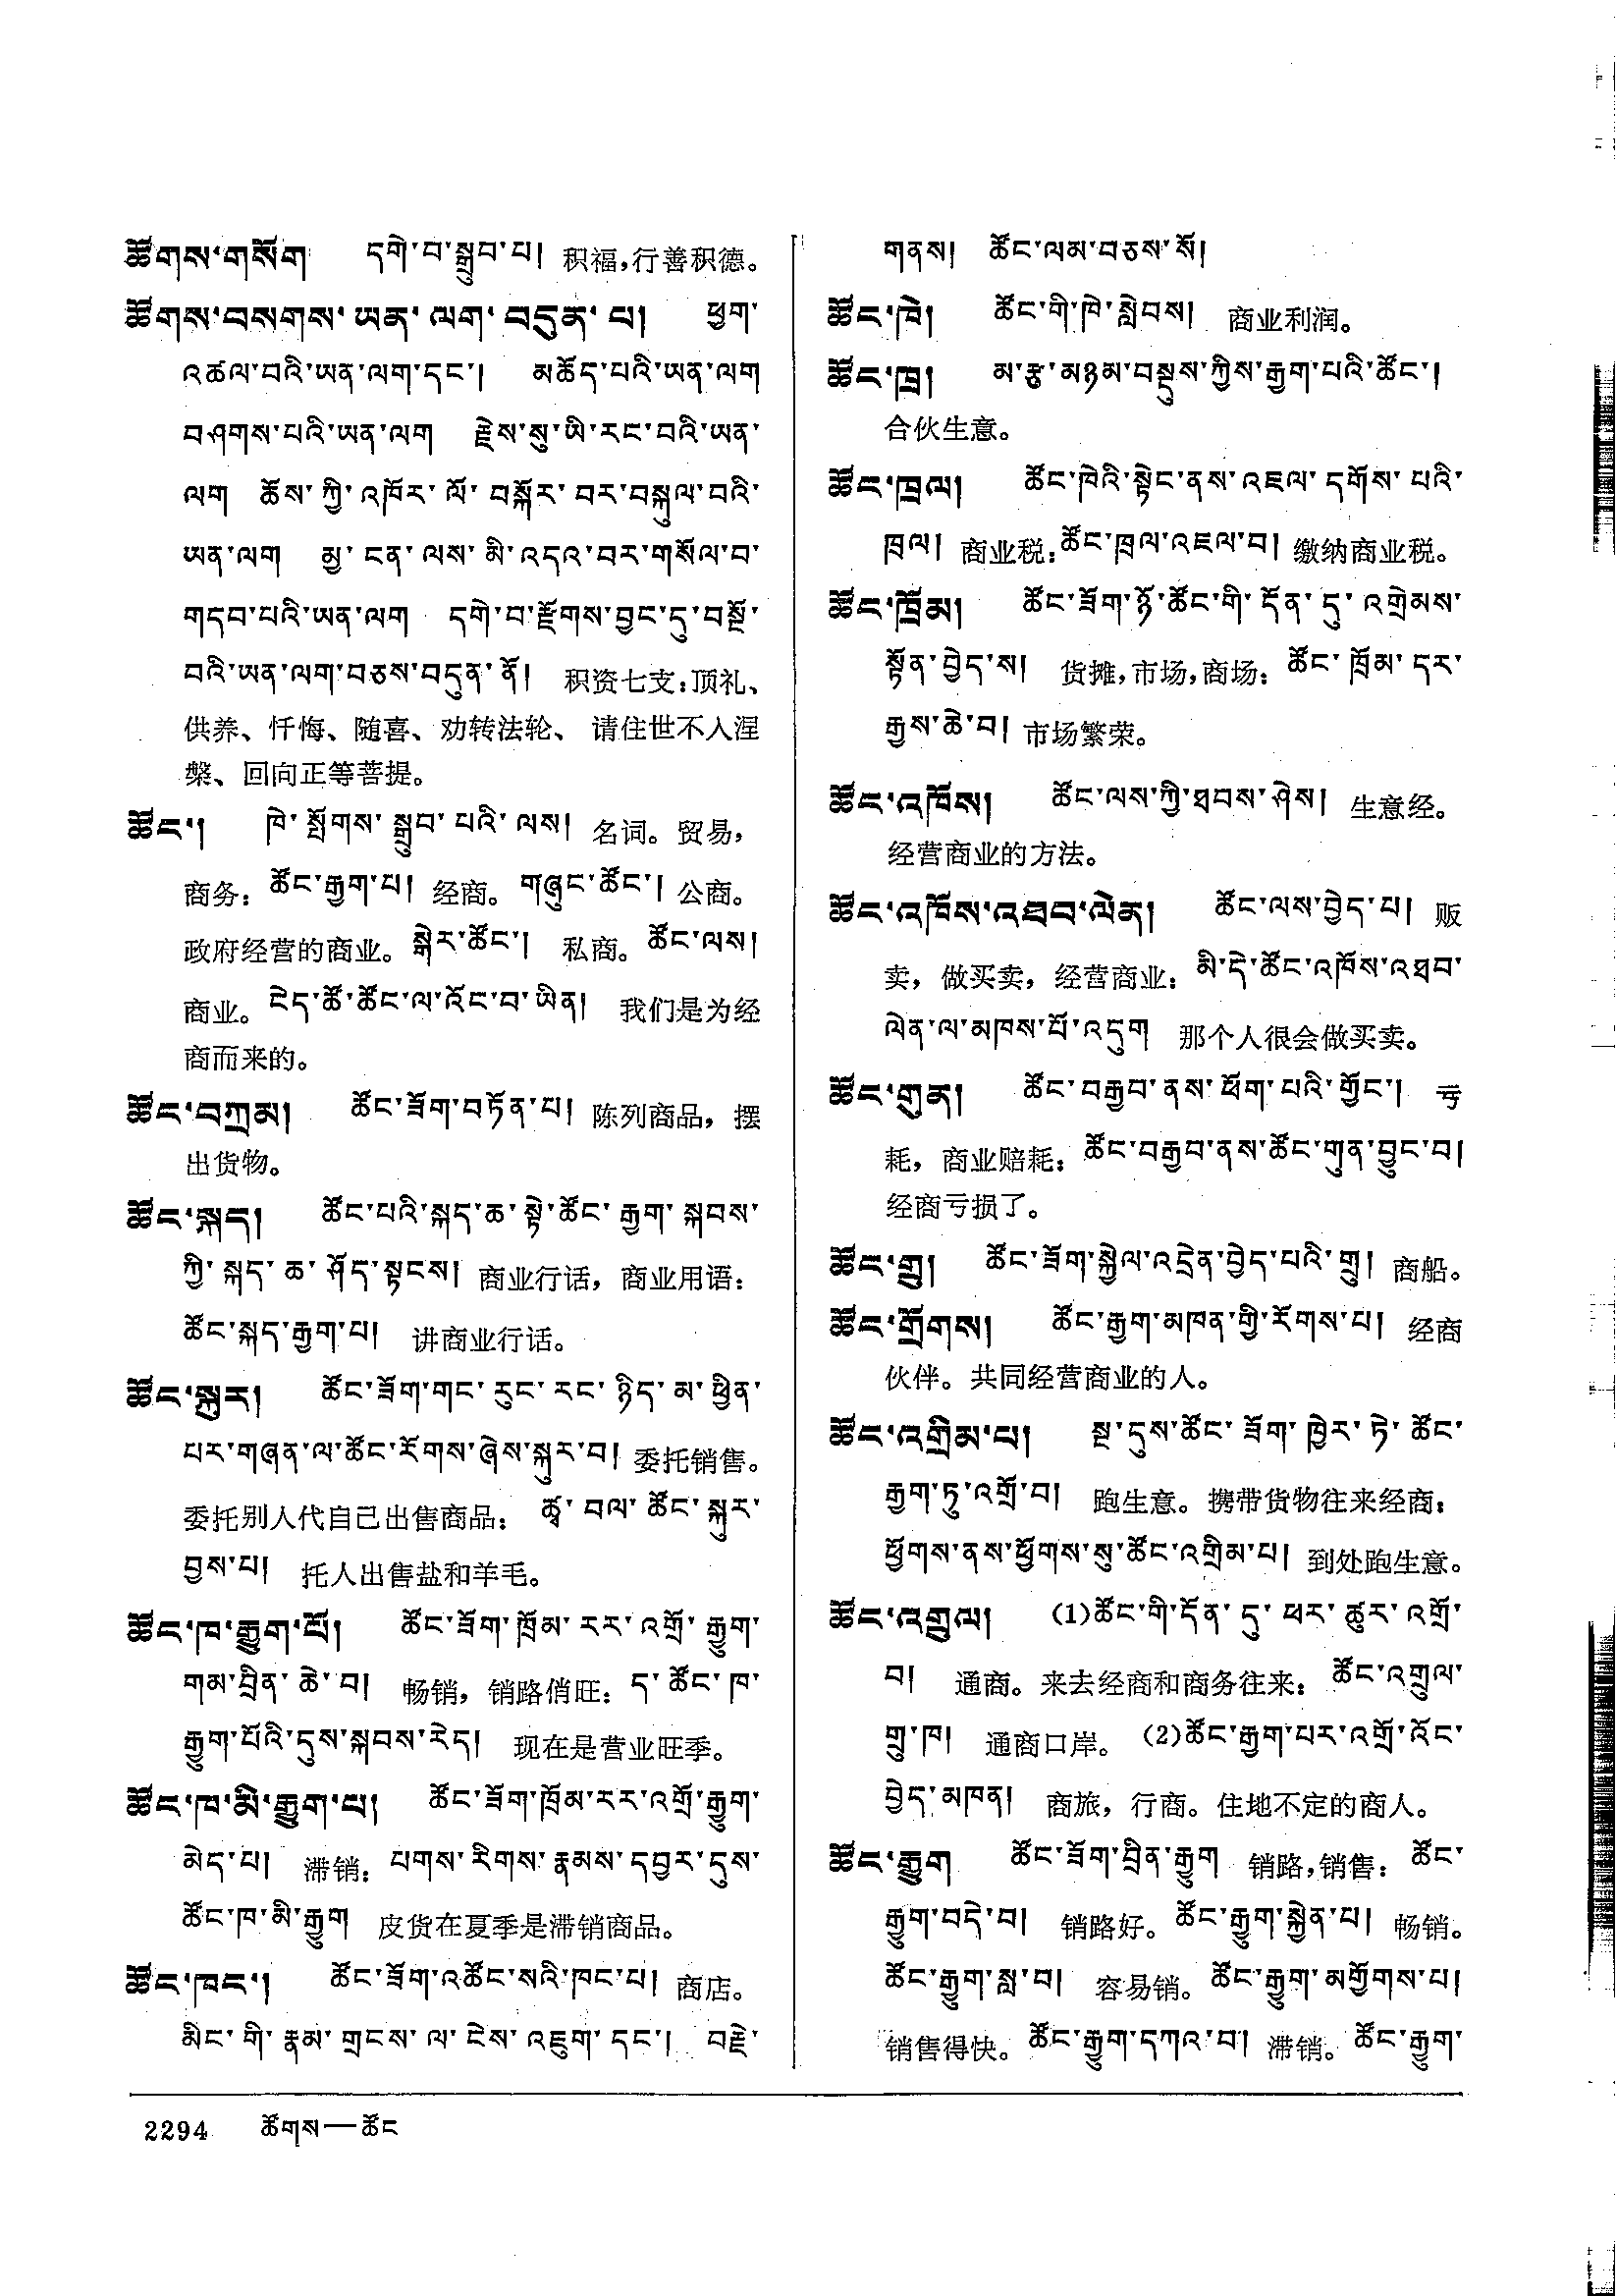 ཚོགས་གསོག དགེ་བ་སྒྲུབ་པ། 积福,行善积德。
ཚོགས་བསགས་ཡན་ལག་བདུན་པ། ཕྱག་
འཚལ་བའི་ཡན་ལག་དང་། མཆོད་པའི་ཡན་ལག
བཤགས་པའི་ཡན་ལག རྗེས་སུ་ཡི་རང་བའི་ཡན་
ལག ཆོས་ཀྱི་འཁོར་ལོ་བསྐོར་བར་བསྐུལ་བའི་
ཡན་ལག མྱ་ངན་ལས་མི་འདའ་བར་གསོལ་བ་
གདབ་པའི་ཡན་ལག དགེ་བ་རྫོགས་བྱང་དུ་བསྔོ་
བའི་ཡན་ལག་བཅས་བདུན་ནོ། 积资七支:顶礼、
供养、忏悔、随喜、劝转法轮、请住世不入涅
槃、回向正等菩提。
ཚོང་། ཁེ་སྤོགས་སྒྲུབ་པའི་ལས། 名词。贸易,
商务: ཚོང་རྒྱག་པ། 经商。གཞུང་ཚོང་། 公商。
政府经营的商业。སྒེར་ཚོང་། 私商。ཚོང་ལས།
商业。ངེད་ཚོ་ཚོང་ལ་འོང་བ་ཡིན། 我们是为经
商而来的。
ཚོང་བཀྲམ། ཚོང་ཟོག་བཏོན་པ། 陈列商品, 摆
出货物。
ཚོང་སྐད། ཚོང་པའི་སྐད་ཆ་སྟེ་ཚོང་རྒྱག་སྐབས་
ཀྱི་སྐད་ཆ་ཤོད་སྟངས། 商业行话, 商业用语:
ཚོང་སྐད་རྒྱག་པ། 讲商业行话。
ཚོང་སྐུར། ཚོང་ཟོག་གང་རུང་རང་ཉིད་མ་ཕྱིན་
པར་གཞན་ལ་ཚོང་རོགས་ཞེས་སྐུར་བ། 委托销售。
委托别人代自己出售商品: ཚྭ་བལ་ཚོང་སྐུར་
བྱས་པ། 托人出售盐和羊毛。
ཚོང་ཁ་རྒྱུག་པོ། ཚོང་ཟོག་ཁྲོམ་རར་འགྲོ་རྒྱུག་
གམ་བྲིན་ཆེ་བ། 畅销, 销路俏旺: ད་ཚོང་ཁ་
རྒྱུག་པོའི་དུས་སྐབས་རེད། 现在是营业旺季。
ཚོང་ཁ་མི་རྒྱུག་པ། ཚོང་ཟོག་ཁྲོམ་རར་འགྲོ་རྒྱུག་
མེད་པ། 滞销: པགས་རིགས་རྣམས་དབྱར་དུས་
ཚོང་ཁ་མི་རྒྱུག 皮货在夏季是滞销商品。
ཚོང་ཁང་། ཚོང་ཟོག་འཚོང་སའི་ཁང་པ། 商店。
མིང་གི་རྣམ་གྲངས་ལ་ངེས་འཇུག་དང་། བརྗེ་
གནས། ཚོང་ལམ་བཅས་སོ།
ཚོང་ཁེ། ཚོང་གི་ཁེ་སླེབས། 商业利润。
ཚོང་ཁྲ། མ་རྩ་མཉམ་བསྡུས་ཀྱིས་རྒྱག་པའི་ཚོང་།
合伙生意。
ཚོང་ཁྲལ། ཚོང་ཁེའི་སྟེང་ནས་འཇལ་དགོས་པའི་
ཁྲལ། 商业税:ཚོང་ཁྲལ་འཇལ་བ། 缴纳商业税。
ཚོང་ཁྲོམ། ཚོང་ཟོག་ཉོ་ཚོང་གི་དོན་དུ་འགྲེམས་
སྟོན་བྱེད་ས། 货摊,市场,商场: ཚོང་ཁྲོམ་དར་
རྒྱས་ཆེ་བ། 市场繁荣。
ཚོང་འཁོས། ཚོང་ལས་ཀྱི་ཐབས་ཤེས། 生意经。
经营商业的方法。
ཚོང་འཁོས་འཐབ་ལེན། ཚོང་ལས་བྱེད་པ། 贩
卖, 做买卖, 经营商业: མི་དེ་ཚོང་འཁོས་འཐབ་
ལེན་ལ་མཁས་པོ་འདུག 那个人很会做买卖。
ཚོང་གུན། ཚོང་བརྒྱབ་ནས་ཕོག་པའི་གྱོང་། 亏
耗, 商业赔耗: ཚོང་བརྒྱབ་ནས་ཚོང་གུན་བྱུང་བ།
经商亏损了。
ཚོང་གྲུ། ཚོང་ཟོག་སྐྱེལ་འདྲེན་བྱེད་པའི་གྲུ། 商船。
ཚོང་གྲོགས། ཚོང་རྒྱག་མཁན་གྱི་རོགས་པ། 经商
伙伴。共同经营商业的人。
ཚོང་འགྲིམ་པ། སྔ་དུས་ཚོང་ཟོག་ཁྱེར་ཏེ་ཚོང་
རྒྱག་ཏུ་འགྲོ་བ། 跑生意。携带货物往来经商:
ཕྱོགས་ནས་ཕྱོགས་སུ་ཚོང་འགྲིམ་པ། 到处跑生意。
ཚོང་འགྲུལ། (1)ཚོང་གི་དོན་དུ་ཕར་ཚུར་འགྲོ་
བ། 通商。来去经商和商务往来: ཚོང་འགྲུལ་
གྲུ་ཁ། 通商口岸。(2)ཚོང་རྒྱག་པར་འགྲོ་འོང་
བྱེད་མཁན། 商旅, 行商。住地不定的商人。
ཚོང་རྒྱུག ཚོང་ཟོག་བྲིན་རྒྱུག 销路,销售: ཚོང་
རྒྱུག་བདེ་བ། 销路好。ཚོང་རྒྱུག་སྐྱེན་པ། 畅销。
ཚོང་རྒྱུག་སླ་བ། 容易销。ཚོང་རྒྱུག་མགྱོགས་པ།
销售得快。ཚོང་རྒྱུག་དཀའ་བ། 滞销。ཚོང་རྒྱུག་
2294 ཚོགས—ཚོང